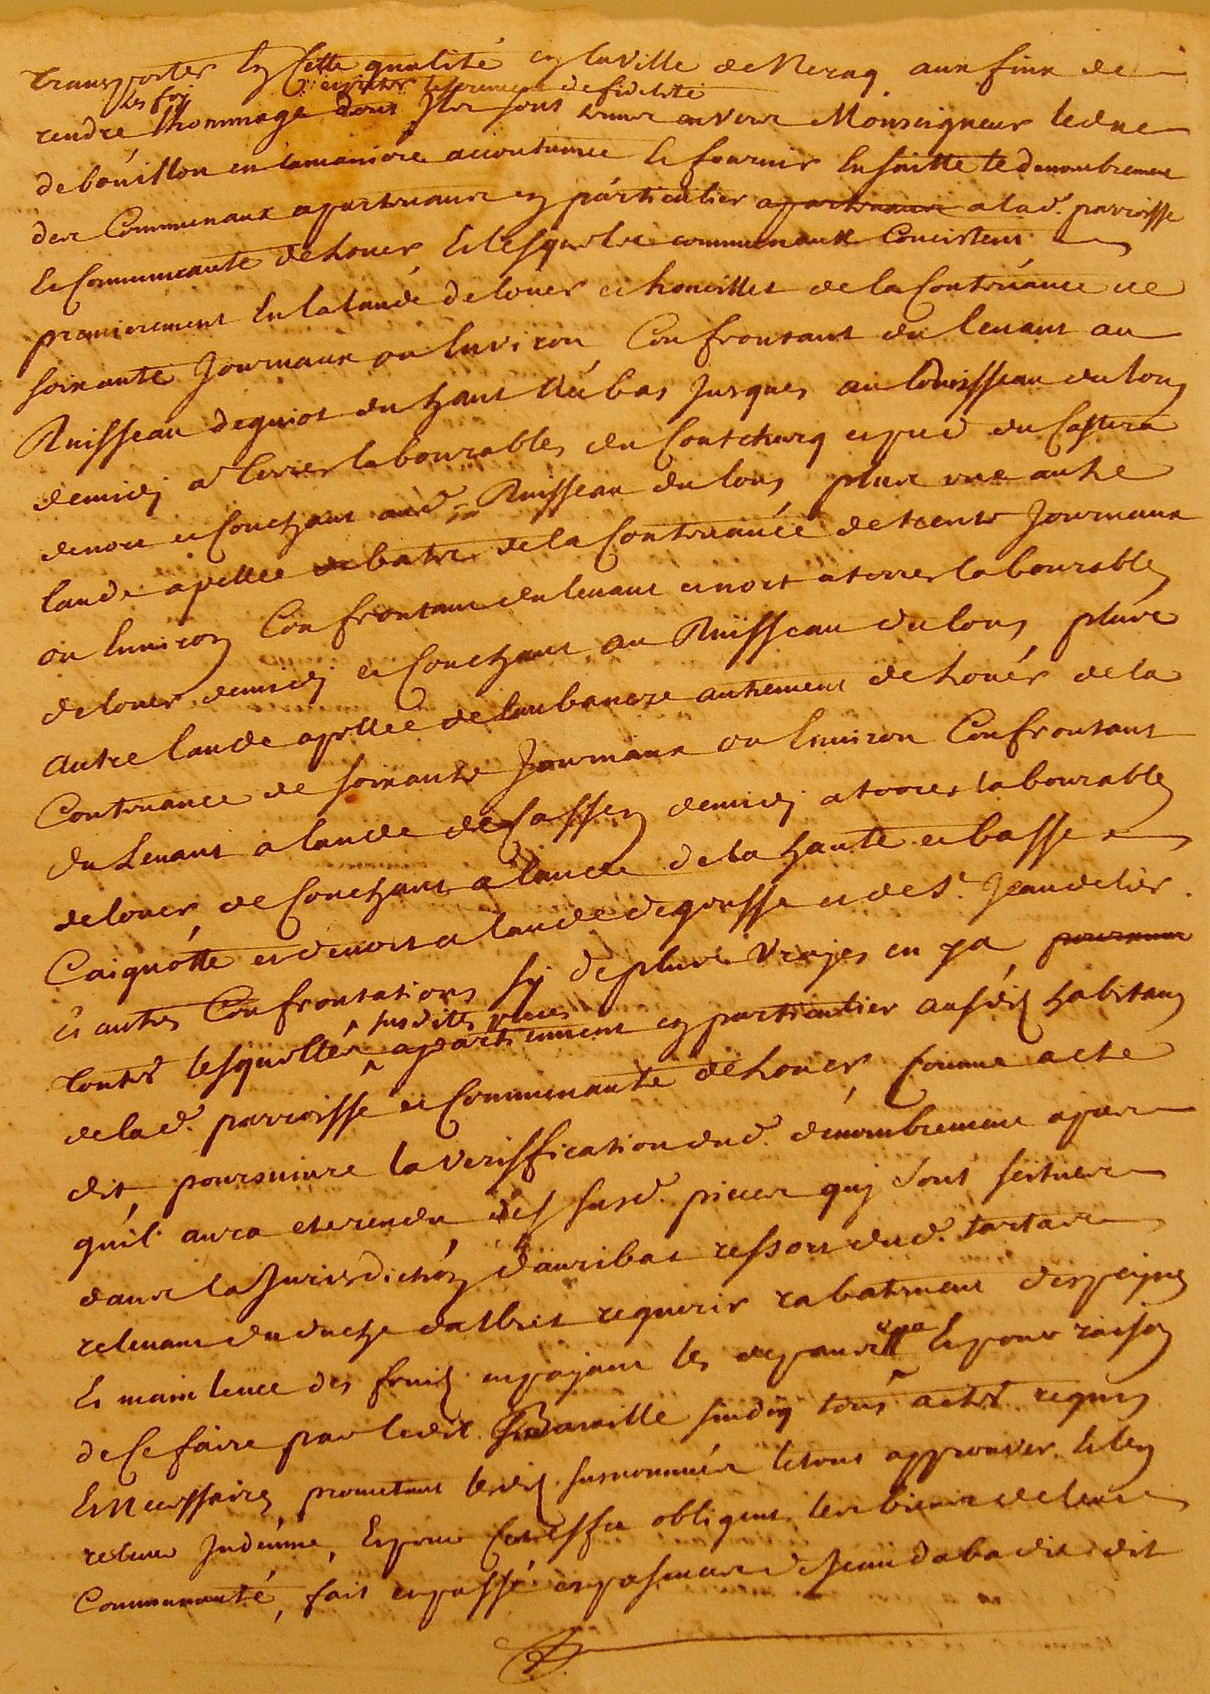 transporter En Cette qualité en la ville de Nerac aux fins de
les foy et prêter le serment de fidelité
rendre l'hommage dont Ils sont tenus envers Monseigneur le duc
de boüillon en la maniere accoutumée Et fournir Ensuitte le denombrement
des Communaux apartenans en particulier apartenans a lad. parroisse
Et Communeauté de Loüer Et lesquels communaux Concistent
premierement En la lande de loüer et de la Contenance de
soixante Journaux ou Environ Confrontant du levant au
Ruisseau de guiot du haut au bas Jusques au Ruisseau du lous
de midj a terres labourables du et pred du Castera
de nort et Couchant aud. Ruisseau du lous plus une autre
lande apellée de la Contenance de trente Journaux
ou Environ Confrontant du levant et nort a terres labourables
de loüer de midj et Couchant au Ruisseau du lous plus
autre lande apellée de autrement de Loüér de la
Contenance de soixante Journaux ou Environ Confrontant
du Levant a lande de Cassen de midj a terres labourables
de loüer de Couchant a lande de la haute et basse
Caignotte et de nort a lande de gousse et de St. Jean de lier
Et autres Confrontations sy de plus Vrayes en ya
toutes lesquelles susdites pieces apartiennent en particulier ausdits habitans
de lad. parroisse et Communauté de Loüer comme acte
dit poursuivre la veriffication dud. dénombrement apres
qu'il aura eté rendu des susd. pieces quj sont scituées
dans la Jurisdiction d'auribat ressort dud. tartas
relevant du duché d'albret requerir rabatement des peynes
Et main levée des fruits en payant les depans Et pour raison
de Ce faire par ledit sindiq tous actes requis
Et Necessaires, promettant lesdits susnommés le tout approuver Et l'en
relever Indemne, Et pour Cet effet obligent les biens de leur
Communauté, fait et passé en presance de Jean dabadie dit